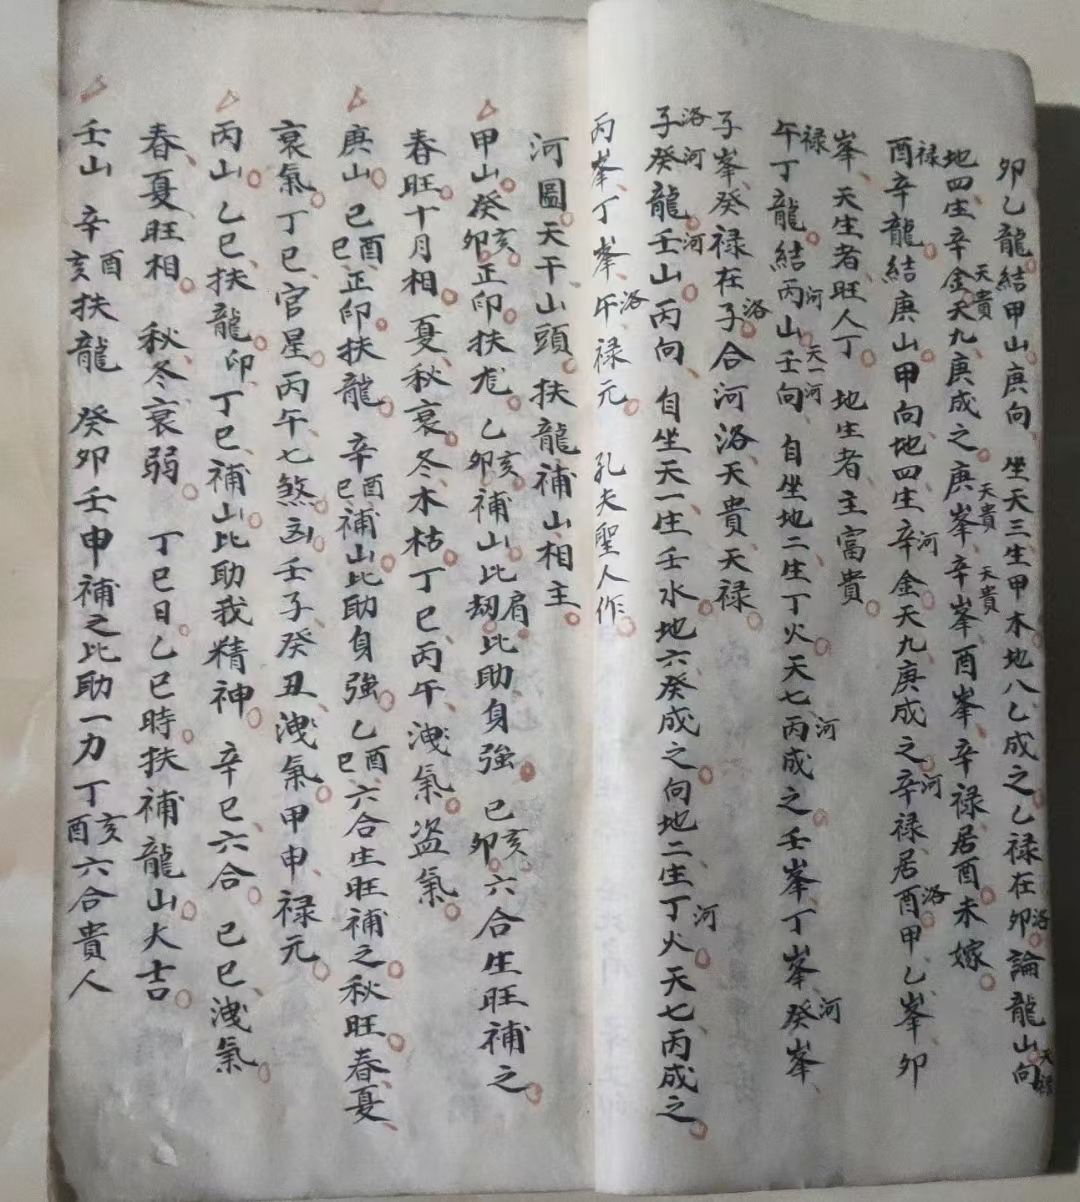 卯乙龍結甲山庚向 坐天三生甲木地八乙成之乙禄在卯洛論龍山向
地四生辛金天九庚成之庚峯辛峯酉峯辛禄居酉未嫁
天貴 天貴 天貴
酉禄辛龍結庚山甲向地四生辛河金天九庚成之辛河禄居酉洛甲乙峯卯
峯天生者旺人丁 地生者主富貴
午禄丁龍結丙山河壬向天一河 自坐地二生丁火天七丙成河之壬峯丁峯癸峯河
子峯癸禄在子洛合河洛天貴天禄
子洛癸河龍壬山河丙向 自坐天一生壬水地六癸成之向地二生丁火河天七丙成之
丙峯丁峯午洛禄元 孔夫聖人作
河圖天干山頭扶龍補山相主
甲山癸卯亥正印扶龙乙卯亥補山比肩劫比助身強 己卯亥六合生旺補之
春旺十月相夏秋衰冬木枯丁巳丙午洩氣盗氣
庚山己巳酉正印扶龍 辛巳酉補山比助身強乙巳酉六合生旺補之秋旺春夏
衰氣丁巳官星丙午七煞凶壬子癸丑洩氣甲申禄元
丙山乙巳扶龍印丁巳補山比助我精神 辛巳六合己巳洩氣
春夏旺相 秋冬衰弱 丁巳日乙巳時扶補龍山大吉
壬山 辛亥酉扶龍 癸卯壬申補之比助一力丁酉亥六合貴人